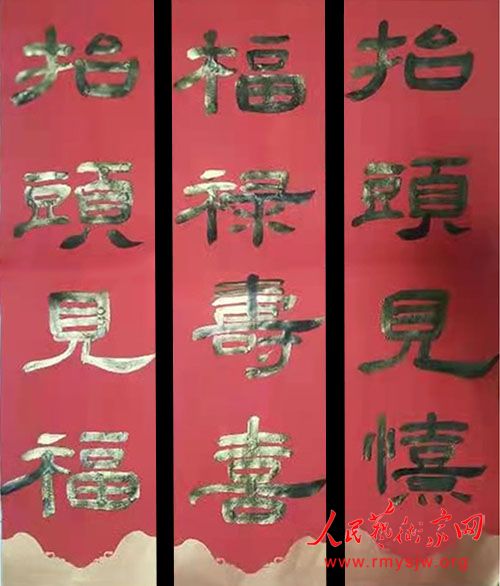 抬頭見憘
福禄壽喜
抬頭見福
人民藝術家网
www.rmysjw.org